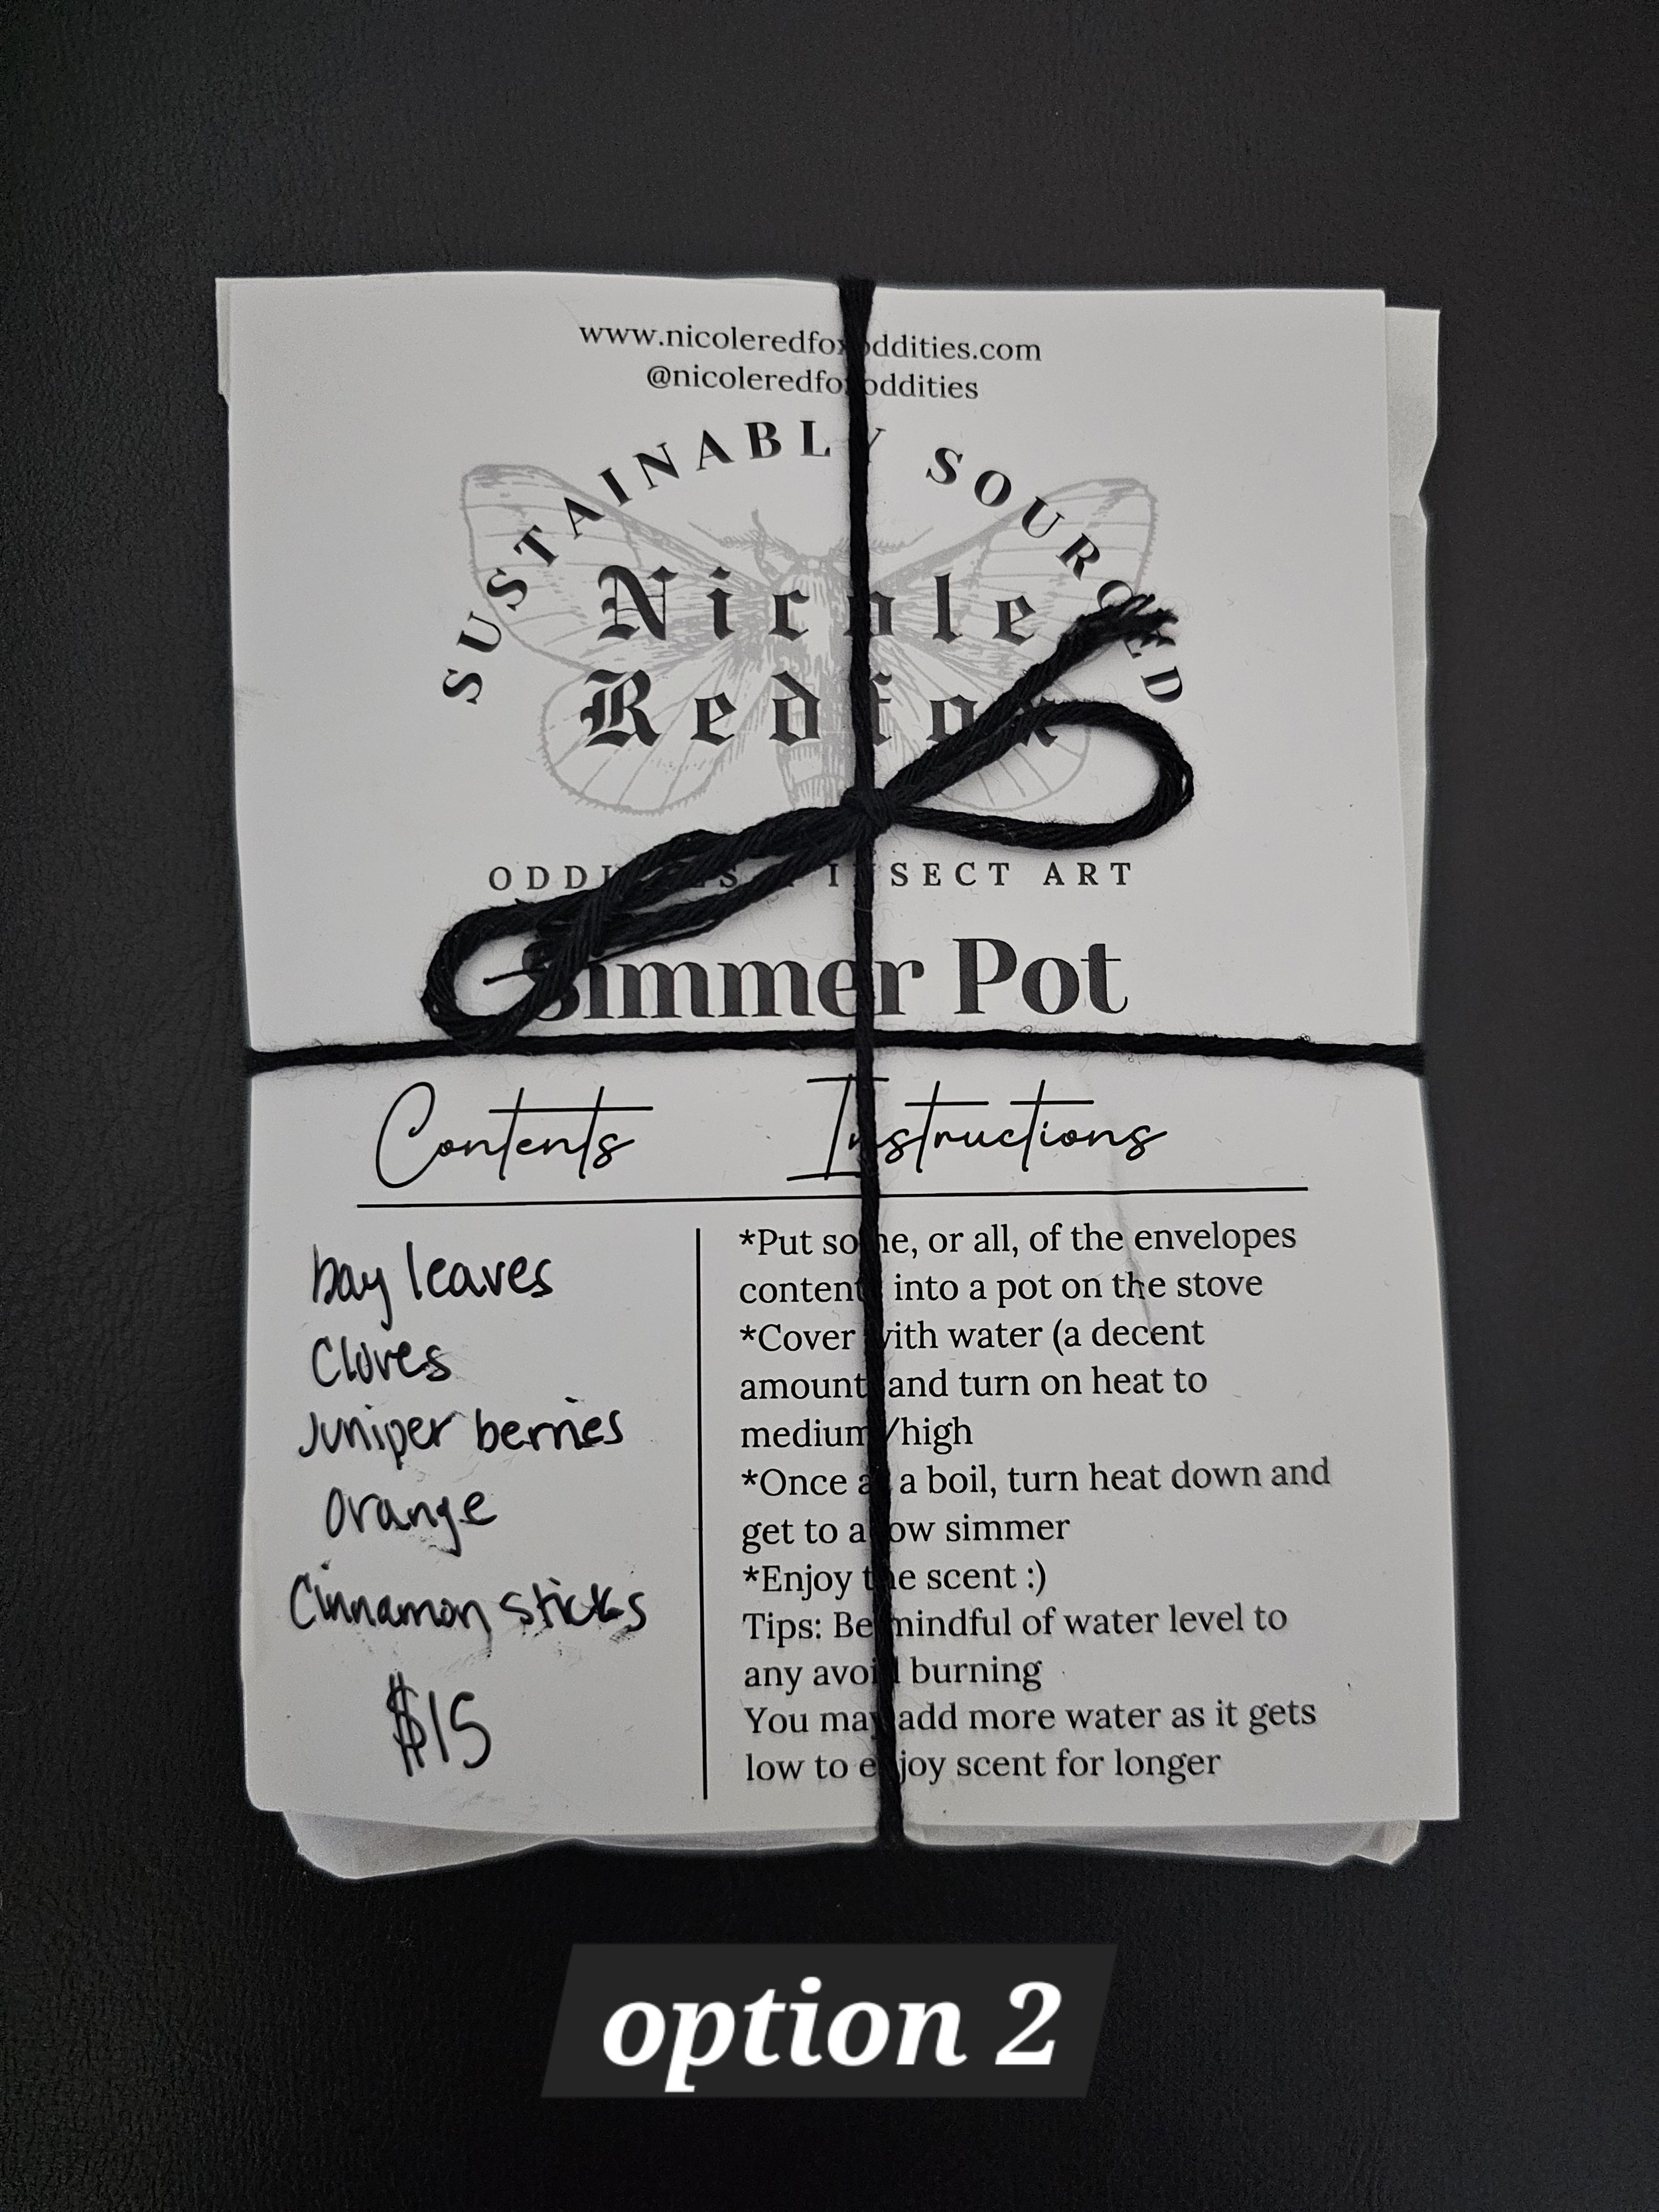 www.nicoleredfoxoddities.com
@nicoleredfoxoddities
SUSTAINABLY SOURCED
Nicole
Redfox
ODDITIES & INSECT ART
Simmer Pot
Contents
Instructions
bay leaves
Cloves
Juniper berries
Orange
Cinnamon sticks
$15
*Put some, or all, of the envelopes
contents into a pot on the stove
*Cover with water (a decent
amount) and turn on heat to
medium/high
*Once at a boil, turn heat down and
get to a low simmer
*Enjoy the scent :)
Tips: Be mindful of water level to
any avoid burning
You may add more water as it gets
low to enjoy scent for longer
option 2